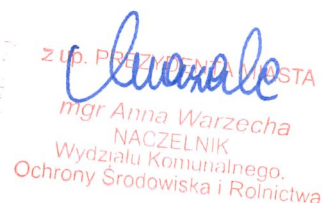 z up. PREZYDENTA MIASTA
mgr Anna Warzecha
NACZELNIK
Wydziału Komunalnego,
Ochrony Środowiska i Rolnictwa